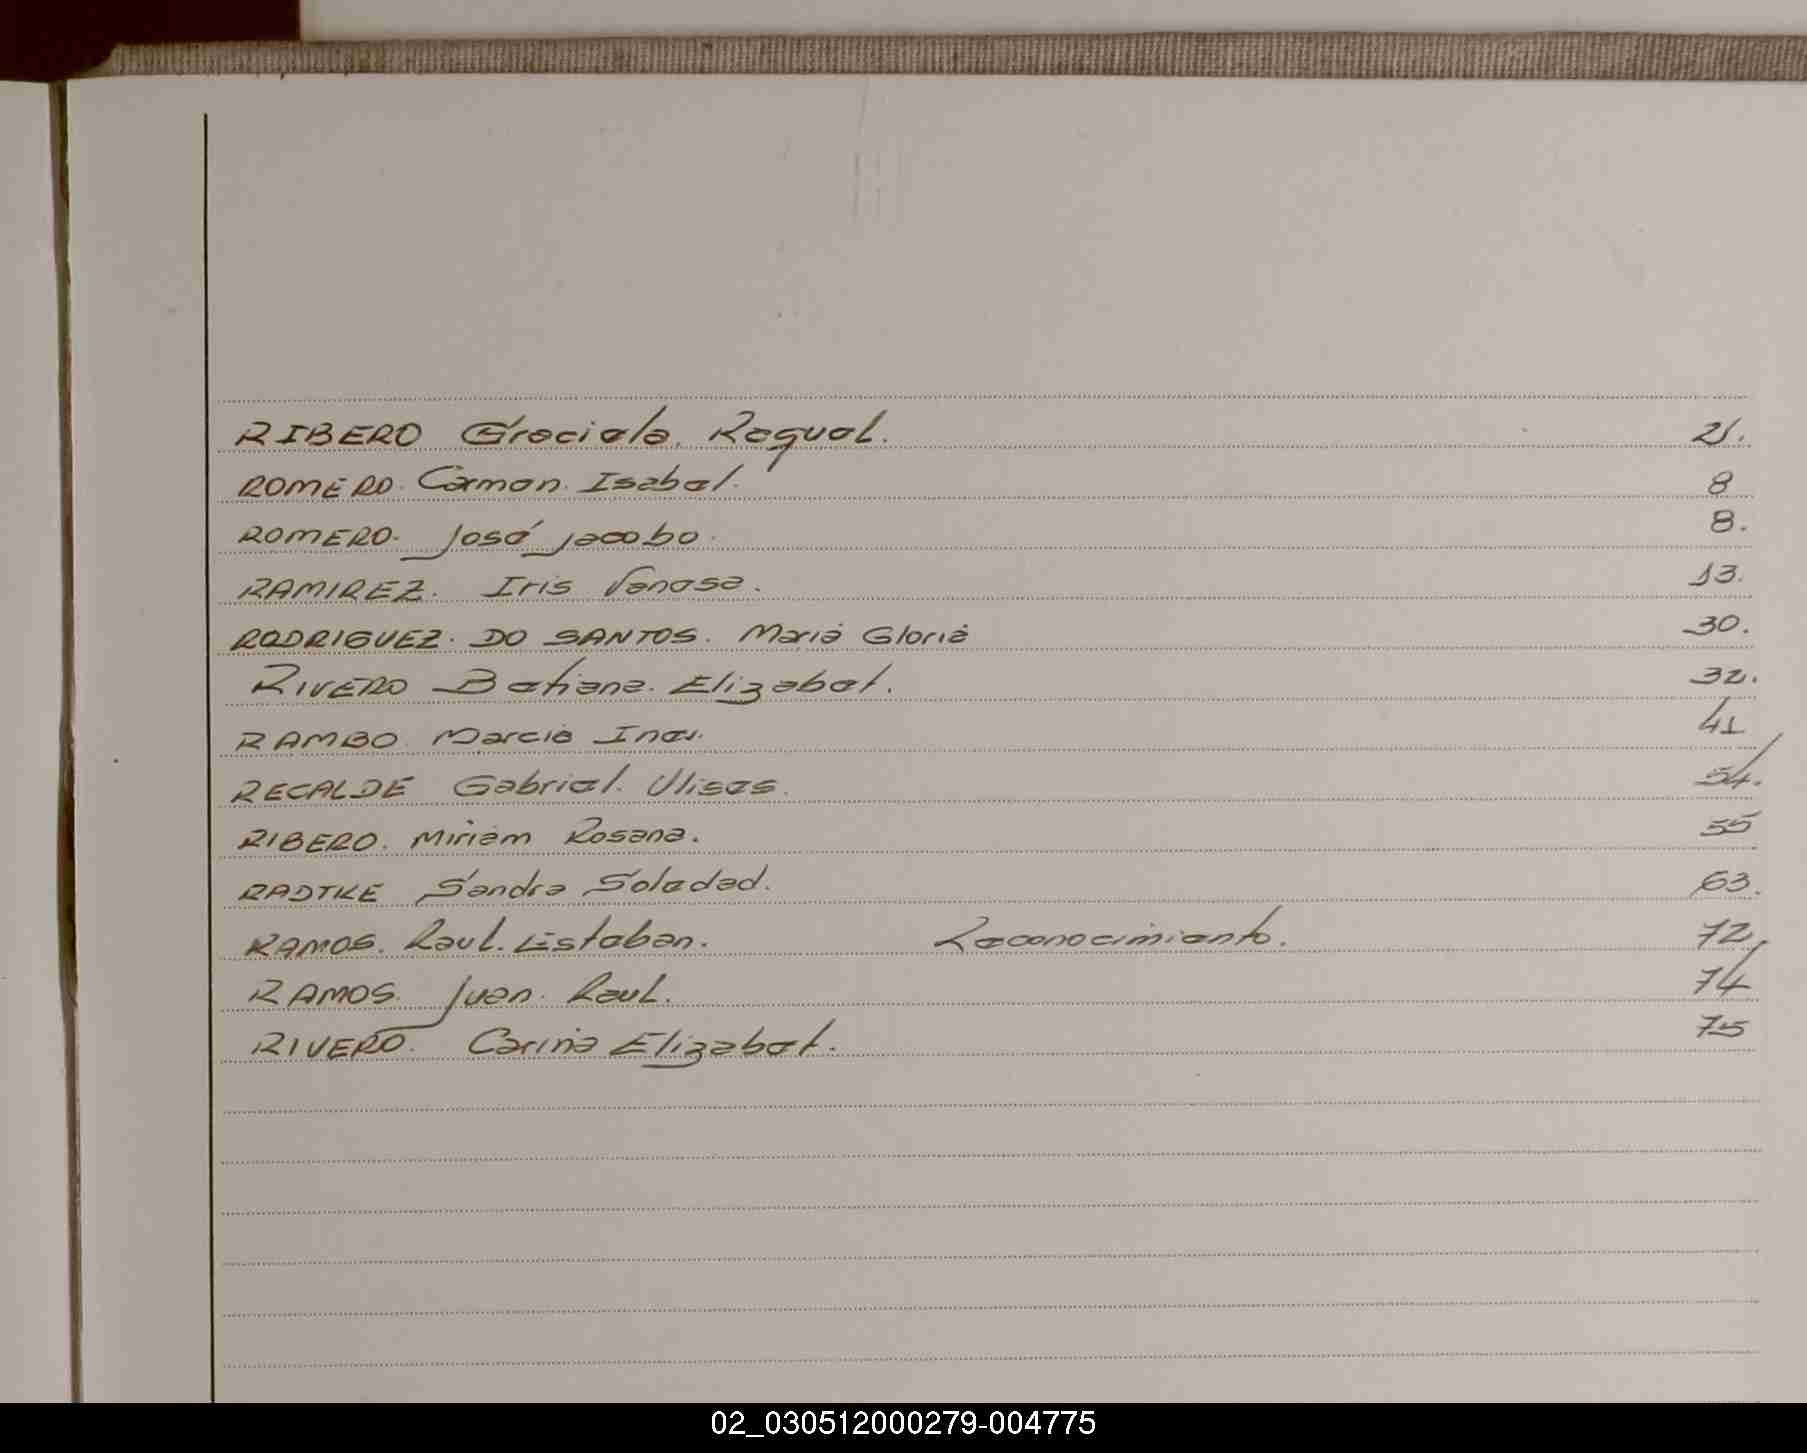 RIBERO Graciela. Raquel. 21.
ROMERO. Carmen. Isabel. 8
ROMERO. José Jacobo. 8.
RAMIREZ. Iris Vanesa. 13.
RODRIGUEZ. DO SANTOS. Maria Gloria 30.
RIVERO Batiana. Elizabet. 32.
RAMBO. Marcia Ines. 41
RECALDE Gabriel. Ulises. 54.
RIBERO. Miriam Rosana. 55
RADTKE Sandra Soledad. 63.
RAMOS. Raul. Esteban. Reconocimiento. 72
RAMOS. Juan. Raul. 74
RIVERO. Carina Elizabet. 75
02_030512000279-004775